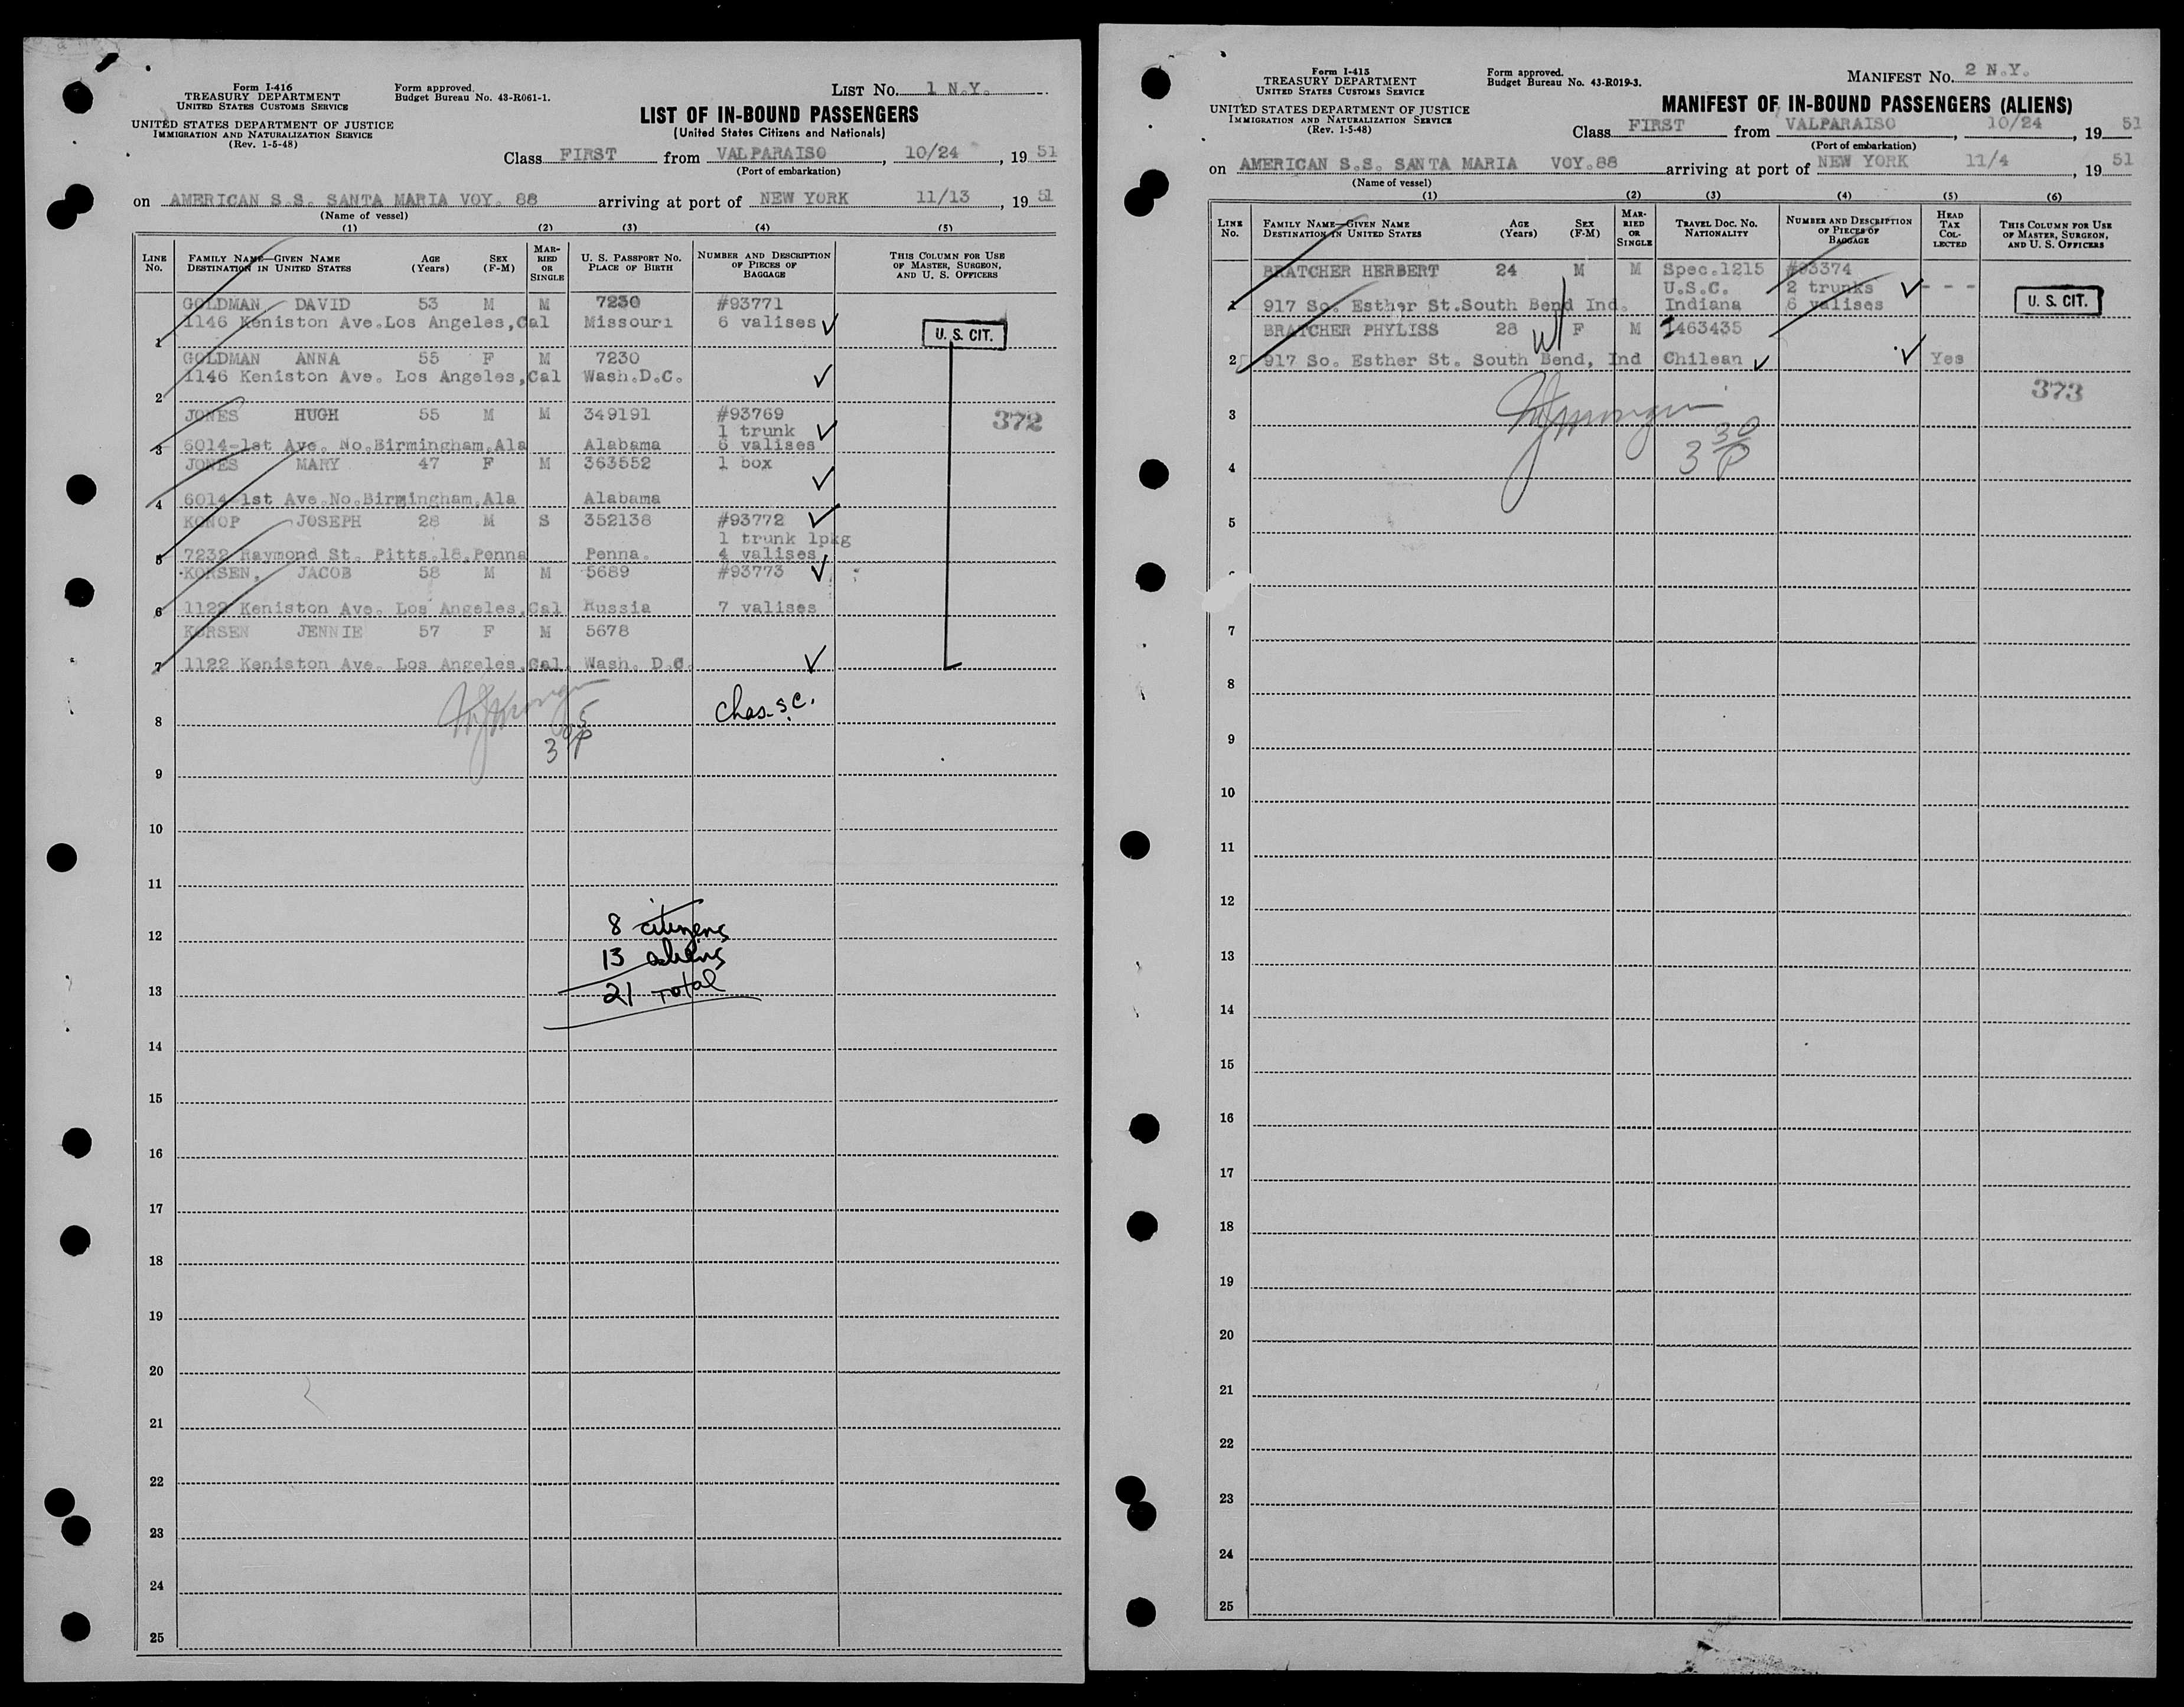 Form I-416
TREASURY DEPARTMENT
UNITED STATES CUSTOMS SERVICE
UNITED STATES DEPARTMENT OF JUSTICE
IMMIGRATION AND NATURALIZATION SERVICE
(Rev. 1-5-48)
Form approved.
Budget Bureau No. 43-R061-1.
LIST No. 1 N.Y.
LIST OF IN-BOUND PASSENGERS
(United States Citizens and Nationals)
Class FIRST from VALPARAISO, 10/24, 19 51
(Port of embarkation)
on AMERICAN S.S. SANTA MARIA VOY. 88 arriving at port of NEW YORK 11/13, 19 51
(Name of vessel)
(1) (2) (3) (4) (5)
LINE No. FAMILY NAME—GIVEN NAME DESTINATION IN UNITED STATES AGE (Years) SEX (F-M) MARRIED OR SINGLE U. S. PASSPORT No. PLACE OF BIRTH NUMBER AND DESCRIPTION OF PIECES OF BAGGAGE THIS COLUMN FOR USE OF MASTER, SURGEON, AND U. S. OFFICERS
GOLDMAN DAVID 53 M M 7230 #93771
1 1146 Keniston Ave.Los Angeles,Cal Missouri 6 valises
U. S. CIT.
GOLDMAN ANNA 55 F M 7230
2 1146 Keniston Ave. Los Angeles,Cal Wash.D.C.
JONES HUGH 55 M M 349191 #93769
372
1 trunk
3 6014-1st Ave. No.Birmingham,Ala Alabama 6 valises
JONES MARY 47 F M 363552 1 box
4 6014-1st Ave.No.Birmingham,Ala Alabama
KONOP JOSEPH 28 M S 352138 #93772
1 trunk 1pkg
5 7232 Raymond St. Pitts.18,Penna Penna. 4 valises
KORSEN, JACOB 58 M M 5689 #93773
6 1122 Keniston Ave. Los Angeles,Cal Russia 7 valises
KORSEN JENNIE 57 F M 5678
7 1122 Keniston Ave. Los Angeles,Cal. Wash. D.C.
Chas. S.C.
8
3 05 P
9
10
11
8 citizens
12
13 aliens
13
21 Total
14
15
16
17
18
19
20
21
22
23
24
25
Form I-415
TREASURY DEPARTMENT
UNITED STATES CUSTOMS SERVICE
UNITED STATES DEPARTMENT OF JUSTICE
IMMIGRATION AND NATURALIZATION SERVICE
(Rev. 1-5-48)
Form approved.
Budget Bureau No. 43-R019-3.
MANIFEST No. 2 N.Y.
MANIFEST OF IN-BOUND PASSENGERS (ALIENS)
Class FIRST from VALPARAISO, 10/24, 19 51
(Port of embarkation)
on AMERICAN S.S. SANTA MARIA VOY.88 arriving at port of NEW YORK 11/4, 19 51
(Name of vessel)
(1) (2) (3) (4) (5) (6)
LINE No. FAMILY NAME—GIVEN NAME DESTINATION IN UNITED STATES AGE (Years) SEX (F-M) MARRIED OR SINGLE TRAVEL DOC. No. NATIONALITY NUMBER AND DESCRIPTION OF PIECES OF BAGGAGE HEAD TAX COLLECTED THIS COLUMN FOR USE OF MASTER, SURGEON, AND U. S. OFFICERS
BRATCHER HERBERT 24 M M Spec.1215 #93374
U.S.C. 2 trunks - - -
1 917 So. Esther St.South Bend Ind. Indiana 6 valises
U. S. CIT.
BRATCHER PHYLISS 28 F M I463435
2 917 So. Esther St. South Bend, Ind Chilean Yes
373
3
3 30 P
4
5
7
8
9
10
11
12
13
14
15
16
17
18
19
20
21
22
23
24
25